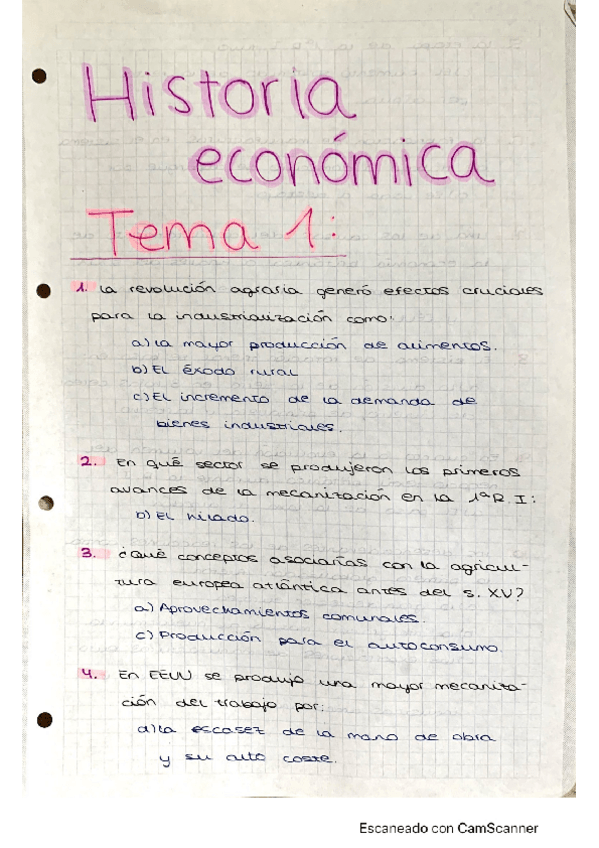 Historia
económica
Tema 1:
1. La revolución agraria generó efectos cruciales
para la industrialización como:
a) La mayor producción de alimentos.
b) El éxodo rural
c) El incremento de la demanda de
bienes industriales.
2. En qué sector se produjeron los primeros
avances de la mecanización en la 1ª R.I:
b) El hilado.
3. ¿Qué conceptos asociarías con la agricul-
tura europea atlántica antes del s. XV?
a) Aprovechamientos comunales.
c) Producción para el autoconsumo.
4. En EEUU se produjo una mayor mecaniza-
ción del trabajo por:
d) La escasez de la mano de obra
y su alto coste.
Escaneado con CamScanner